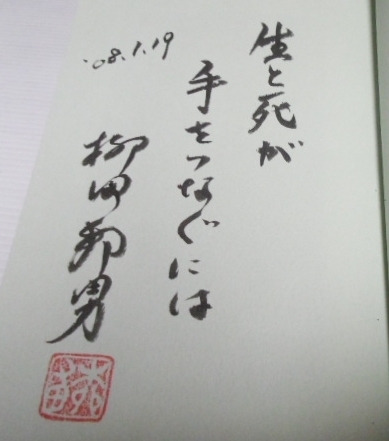 生と死が
手をつなぐには
'08.1.19
柳田邦男